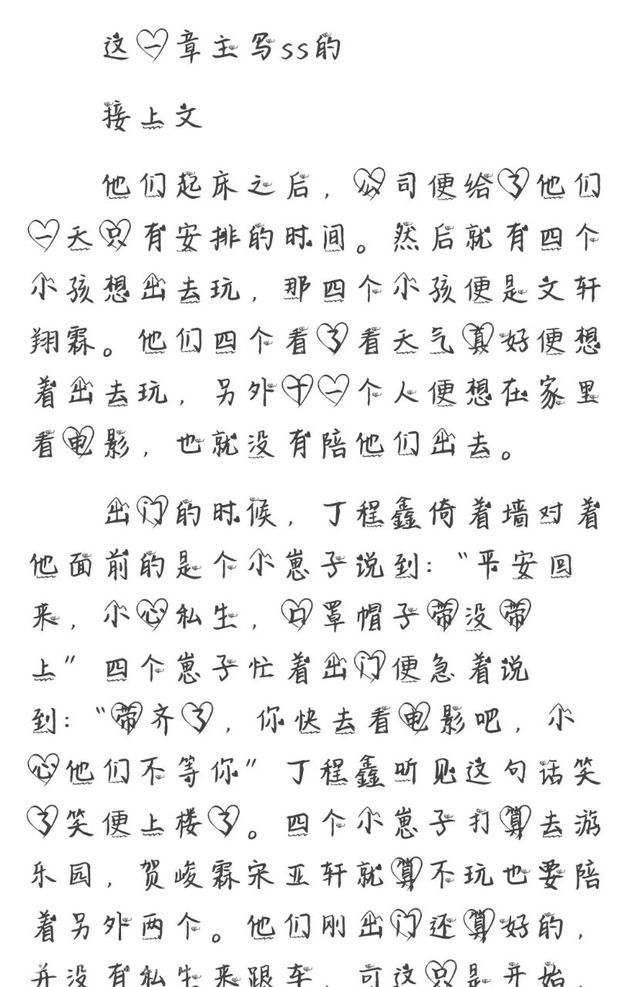 这一章主写ss的
接上文
他们起床之后，公司便给了他们
一天只有安排的时间。然后就有四个
小孩想出去玩，那四个小孩便是文轩
翔霖。他们四个看了看天气真好便想
着出去玩，另外十一个人便想在家里
看电影，也就没有陪他们出去。
出门的时候，丁程鑫倚着墙对着
他面前的是个小崽子说到：“平安回
来，小心私生，口罩帽子带没带
上”四个崽子忙着出门便急着说
到：“带齐了，你快去看电影吧，小
心他们不等你”丁程鑫听见这句话笑
了笑便上楼了。四个小崽子打算去游
乐园，贺峻霖宋亚轩就算不玩也要陪
着另外两个。他们刚出门还算好的，
并没有私生来跟车，可这只是开始，